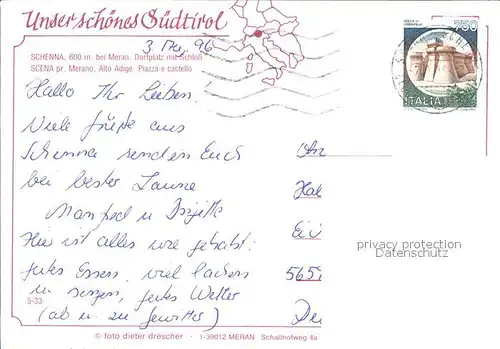 Unser schönes Südtirol
750
3. Mai, 96
SCHENNA, 600 m. bei Meran. Dorfplatz mit Schloß
SCENA pr. Merano, Alto Adige. Piazza e castello
ITALIA
Hallo Ihr Lieben!
Viele Grüße aus
Schenna senden Euch
bei bester Laune
Manfred u Brigitte
Hier ist alles wie gehabt:
gutes Essen, viel lachen
u singen, gutes Wetter
(ab u zu Gewitter)
An
565
privacy protection
Datenschutz
5-33
© foto dieter drescher · I-39012 MERAN Schallhofweg 4a